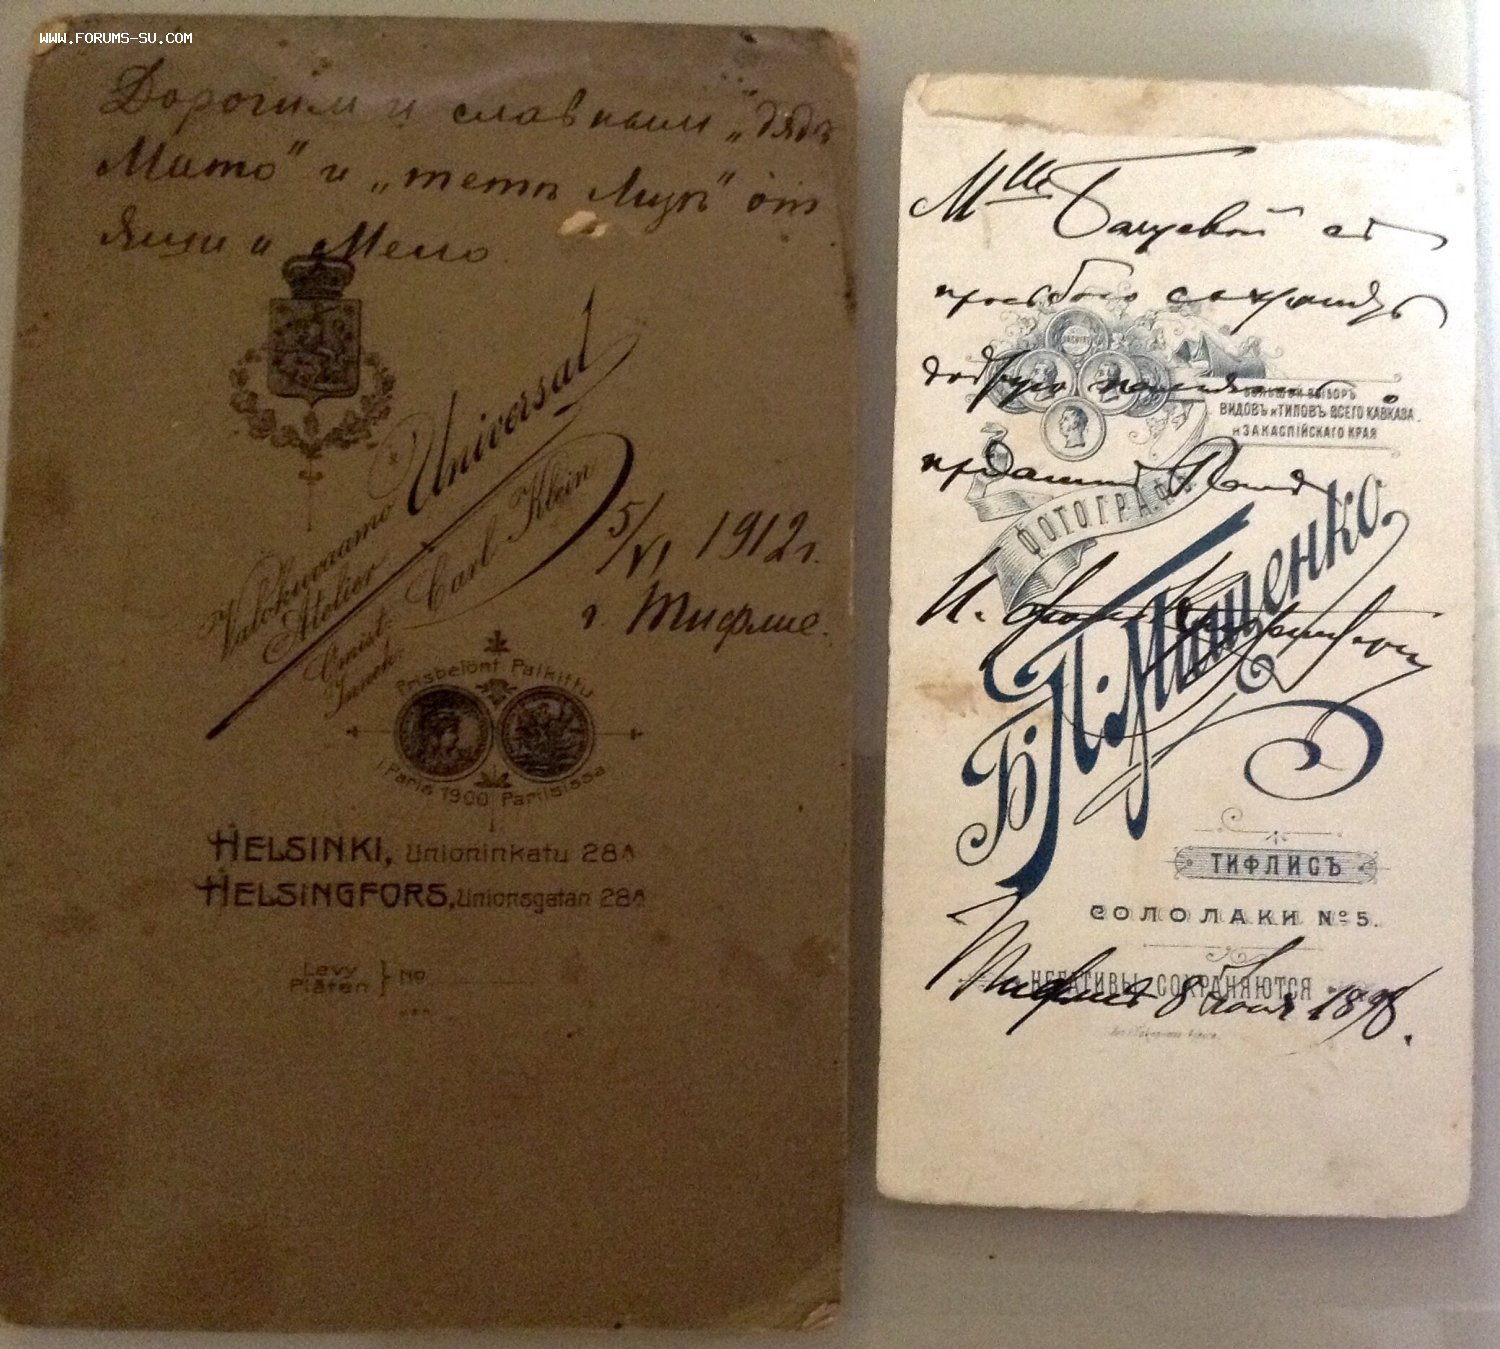 WWW.FORUMS-SU.COM
Дорогимъ и славнымъ „дядѣ
Мито" и „тетѣ Лизѣ" от
Яши и Мело.
Valokuvaamo Universal
Atelier
Omist.
Inneh.
Carl Klein
5/VI 1912 г.
г. Тифлис.
Prisbelönt Palkittu
i Paris 1900 Pariisissa
HELSINKI, Unioninkatu 28A
HELSINGFORS, Unionsgatan 28A
Levy
Plåten
No
Мlle
съ
просьбою сохранить
добрую
БОЛЬШОЙ ВЫБОРЪ
ВИДОВЪ и ТИПОВЪ ВСЕГО КАВКАЗА
и ЗАКАСПІЙСКАГО КРАЯ
ФОТОГРАФ
И.
Б. П. Мищенко
ТИФЛИСЪ
СОЛОЛАКИ № 5.
НЕГАТИВЫ СОХРАНЯЮТСЯ
Тифлисъ 8 1898.